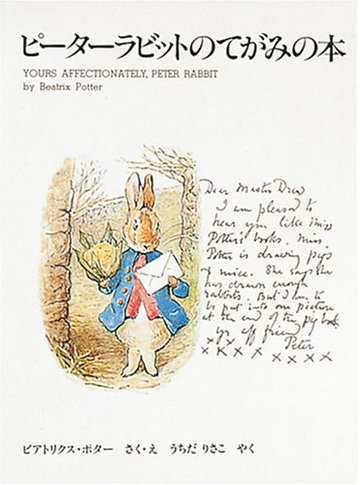 ピーターラビットのてがみの本
YOURS AFFECTIONATELY, PETER RABBIT
by Beatrix Potter
Dear Master Drew
I am pleased to
hear you like Miss
Potter's books. Miss
Potter is drawing pigs
& mice. She says she
has drawn enough
rabbits. But I am to
be put into one picture
at the end of the pig book
yr. aff friend
Peter
x x x x x x x x
ビアトリクス・ポター さく・え うちだ りさこ やく